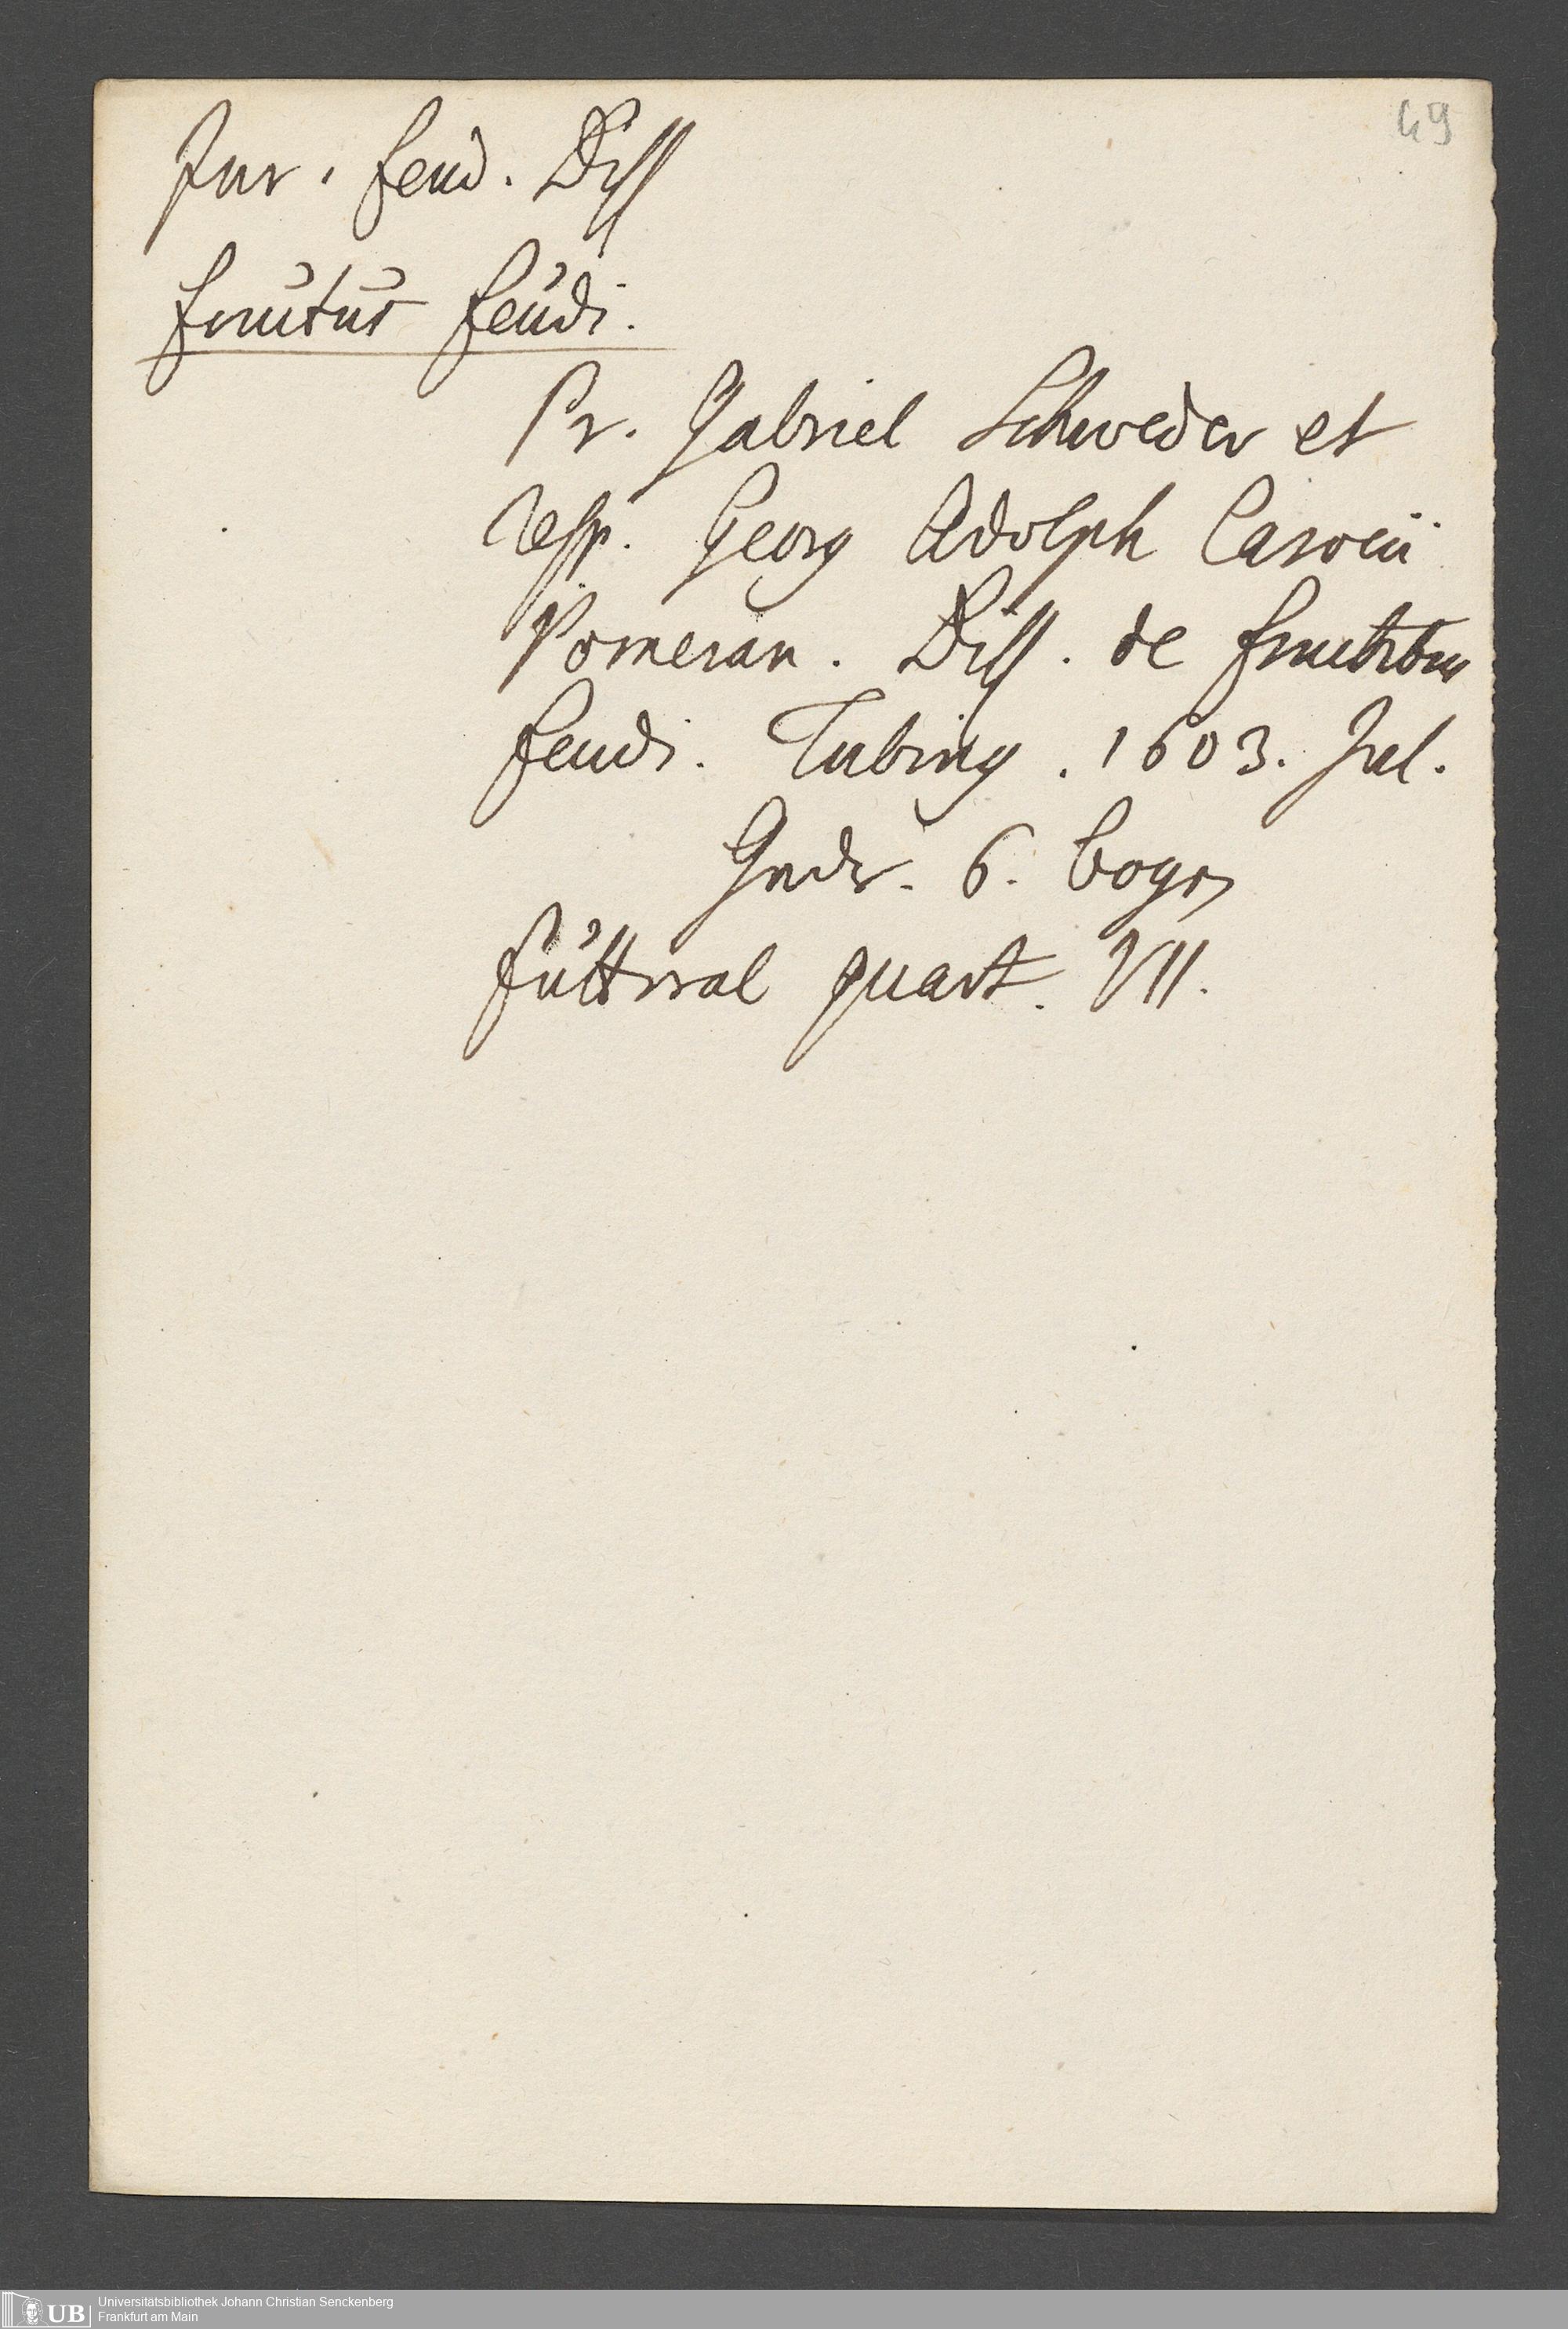 49
Jur. feud. Diss
fructus feudi.
Pr. Gabriel Schweder et
resp. Georg Adolph Caroci
Pomeran. Diss. de fructibus
feudi. Tubing. 1603. Jul.
6. bogen
Futteral quart. VII.
UB Universitätsbibliothek Johann Christian Senckenberg
Frankfurt am Main